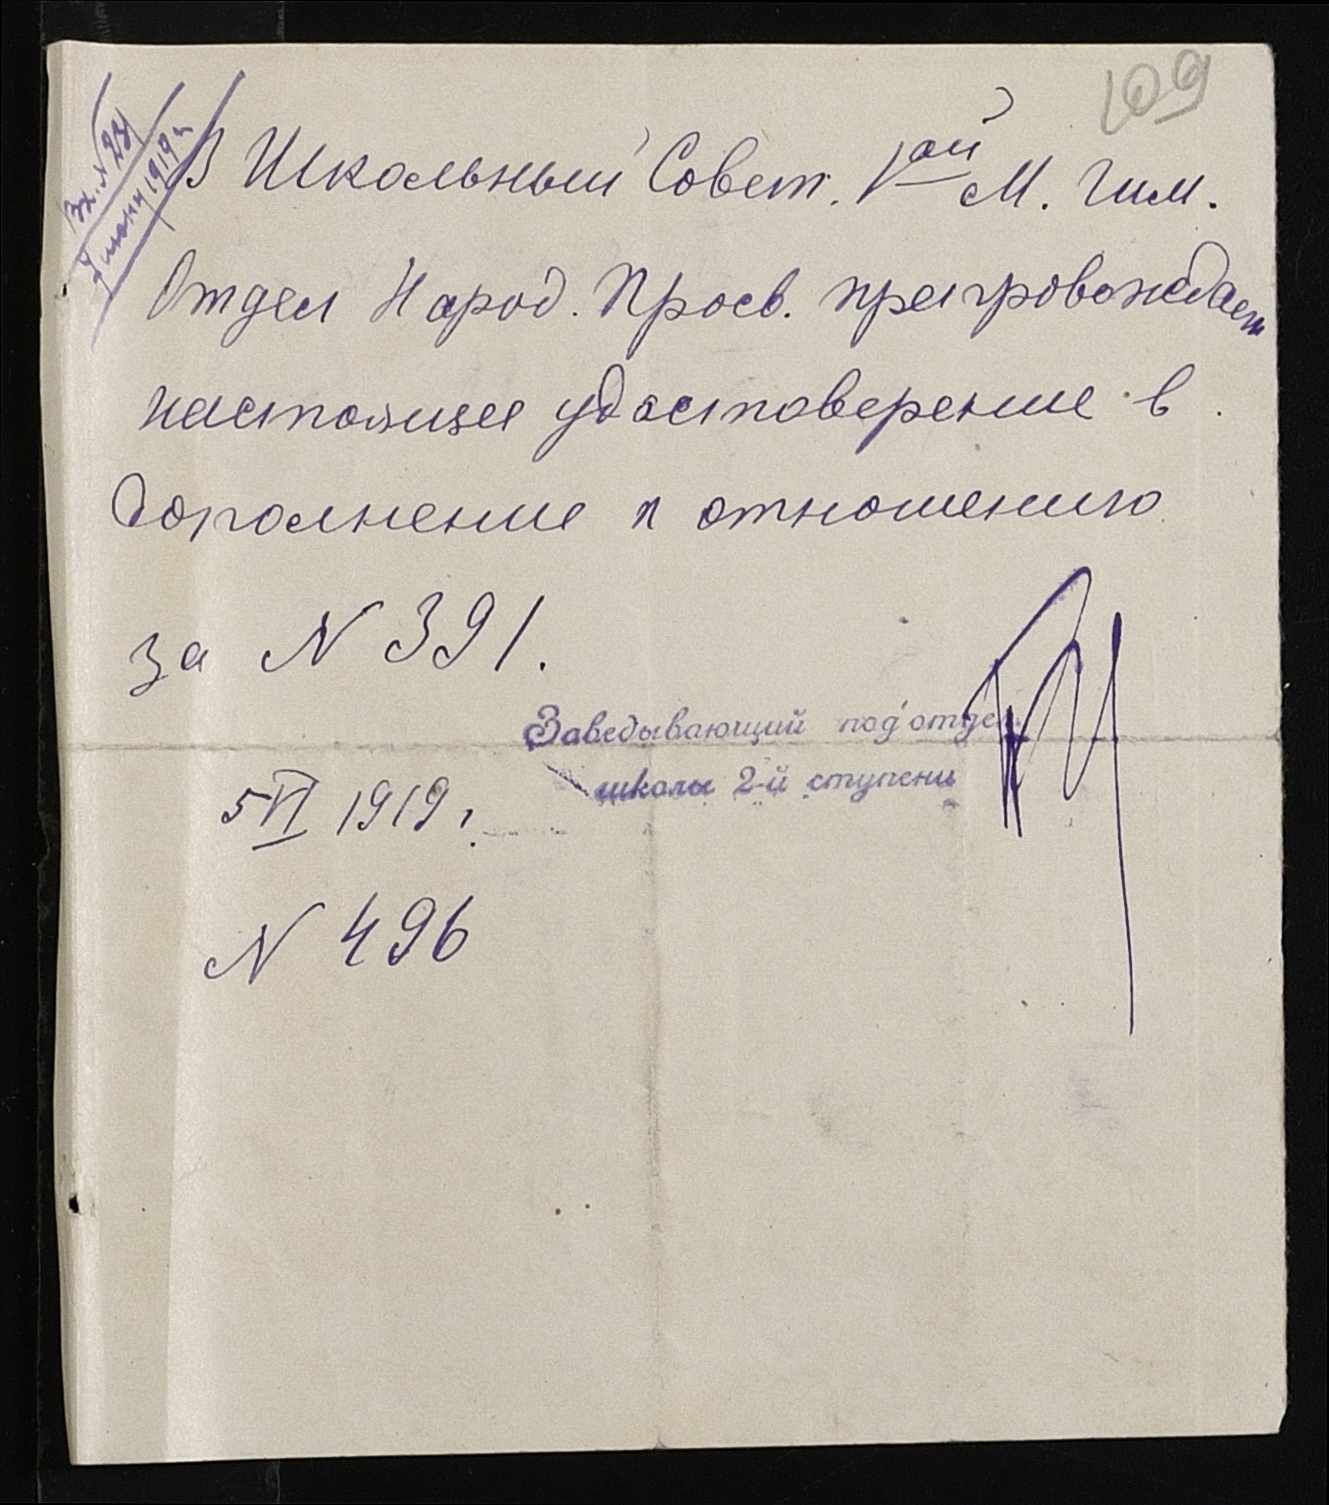 109
Вх. N 231
7 июня 1919 г
В Школьный Совет. 1ой М. Гим.
Отдел Народ. Просв. препровождает
настоящее удостоверение в
дополнение к отношению
за N 391.
Заведывающий под'отдел.
школы 2-й ступени
5 VI 1919 г.
N 496